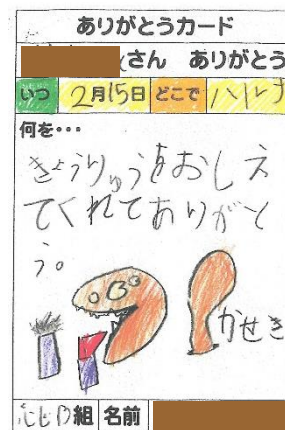 ありがとうカード
さん ありがとう
いつ 2月15日 どこで
何を・・・
きょうりゅうをおしえ
てくれてありがと
う。
かせき
組 名前